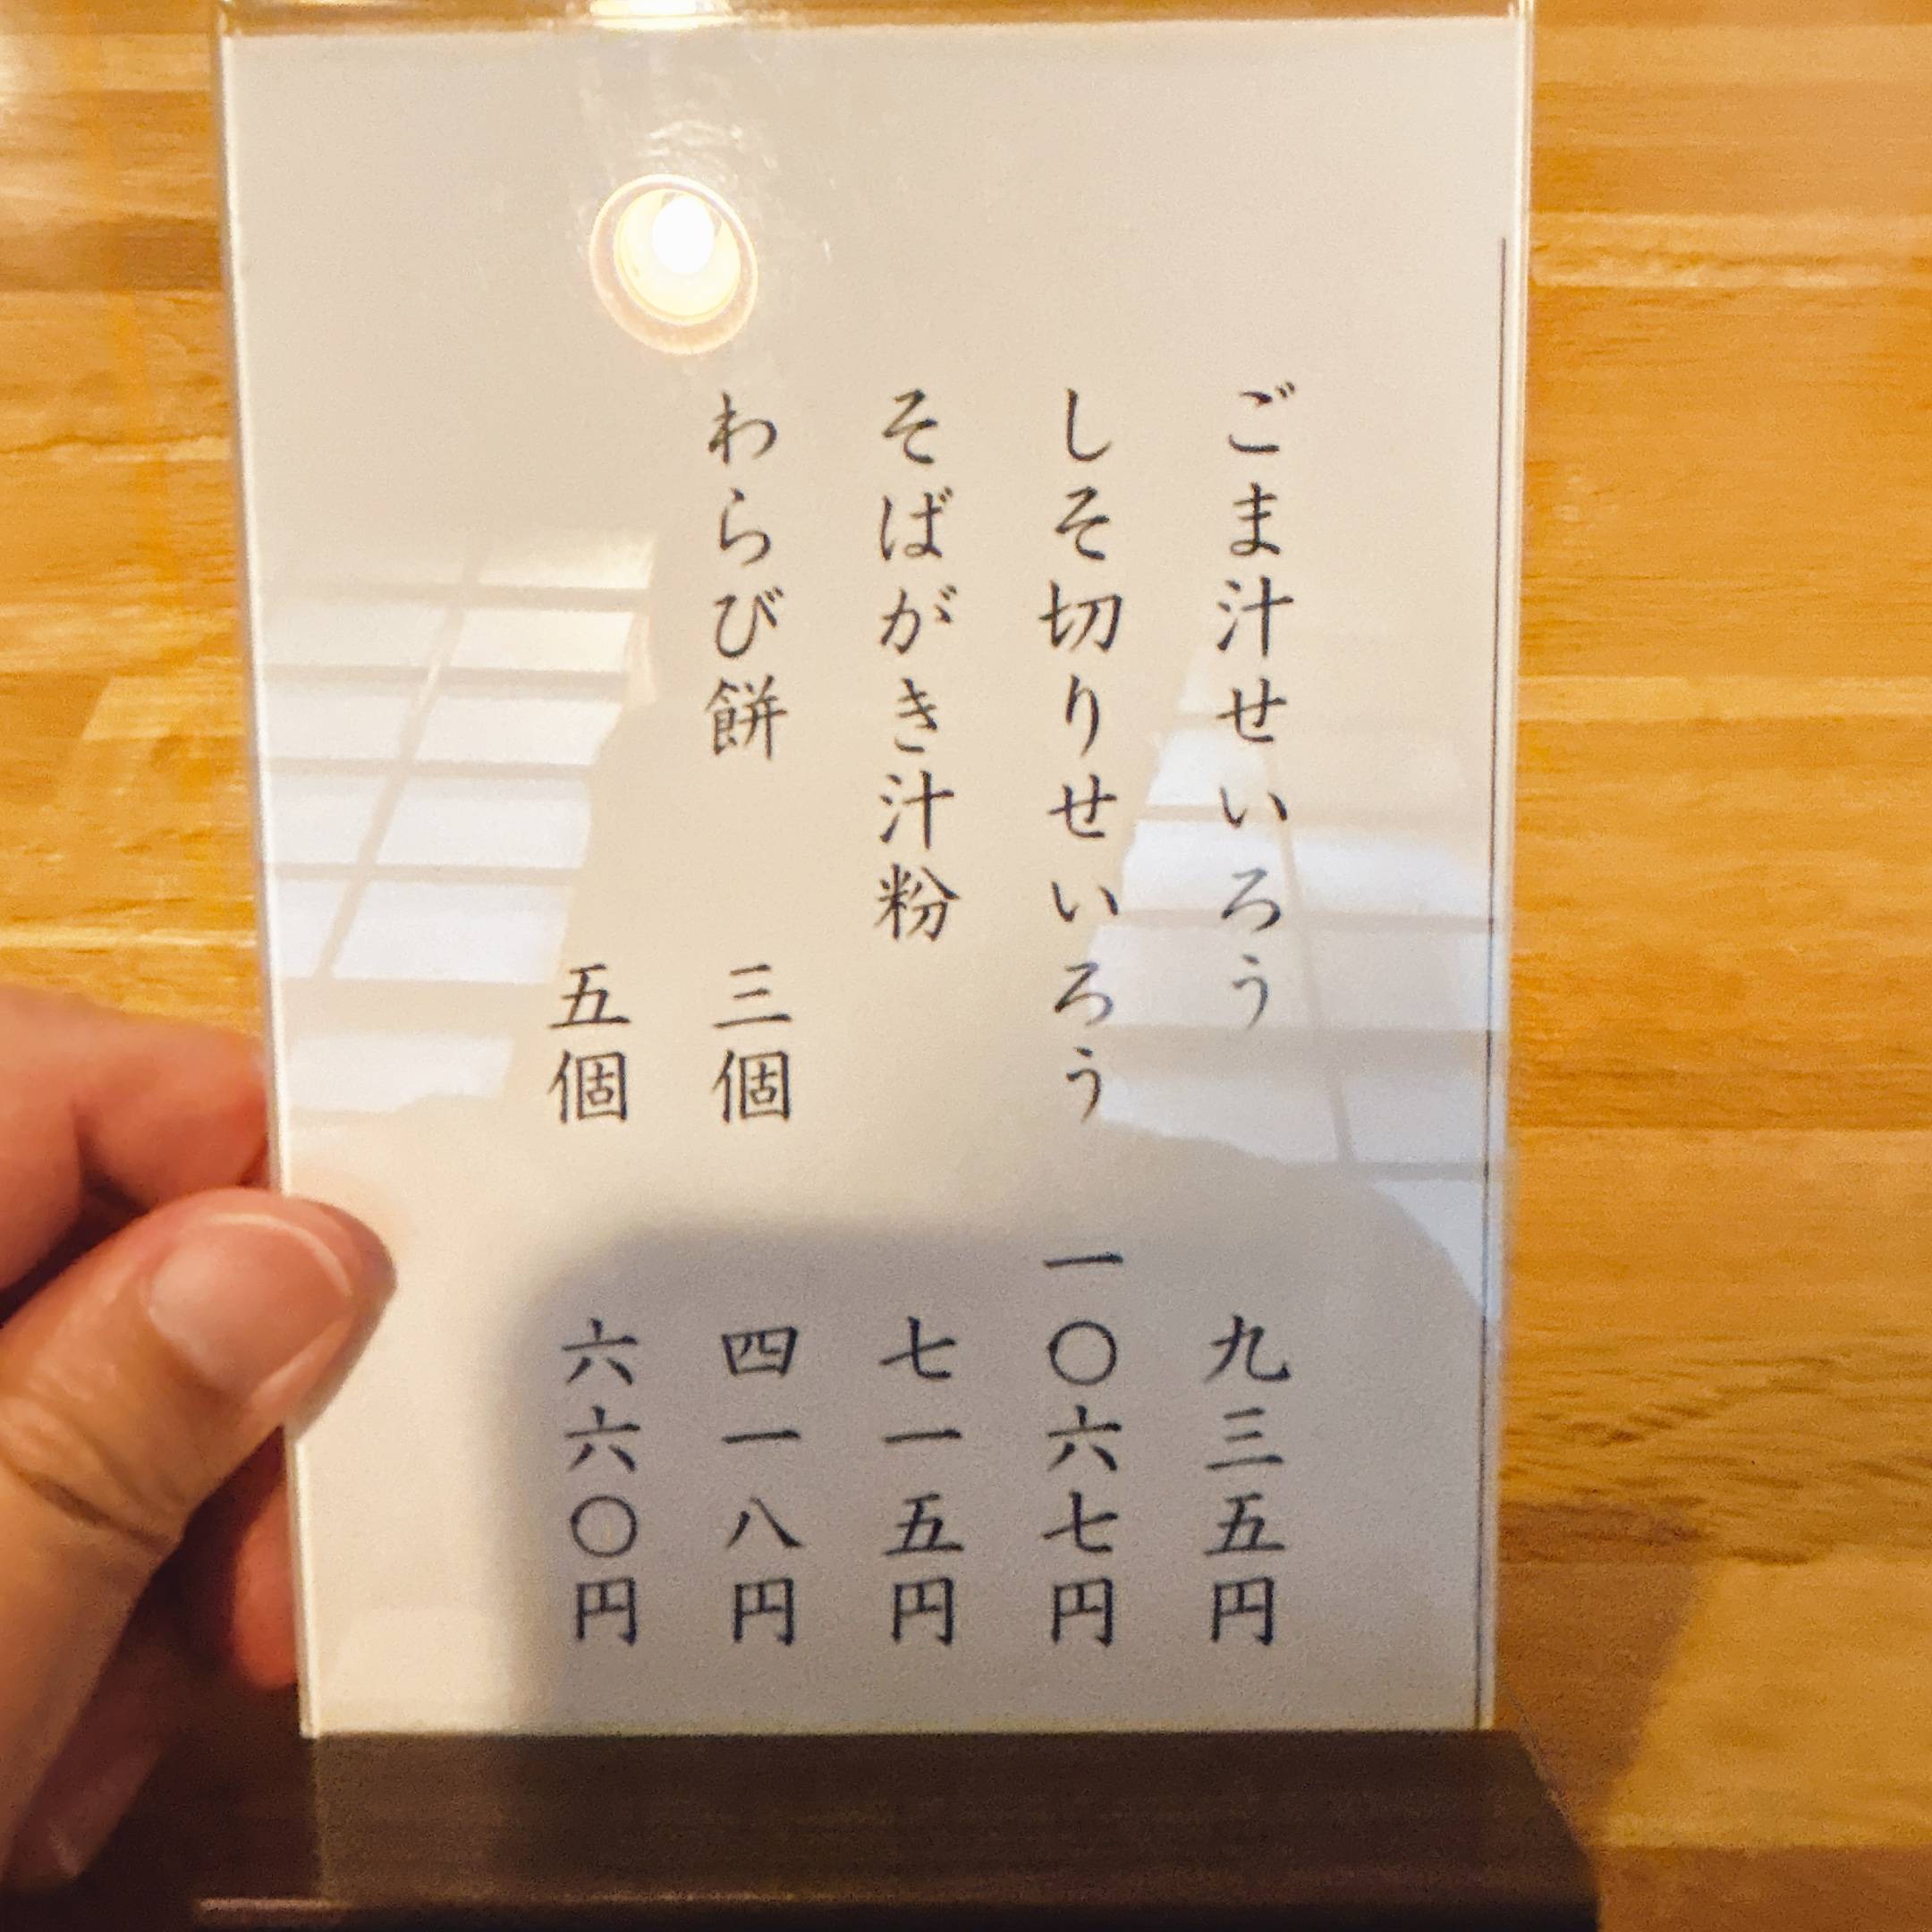 ごま汁せいろう 九三五円
しそ切りせいろう 一〇六七円
そばがき汁粉 七一五円
わらび餅 三個 四一八円
五個 六六〇円